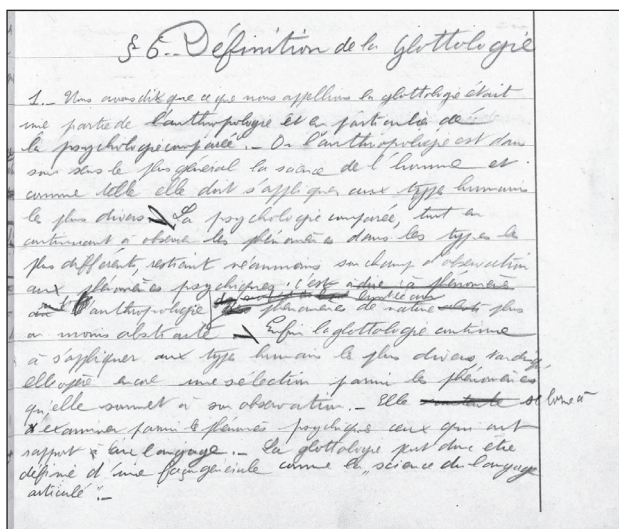 § 6.- Définition de la Glottologie
1.- Nous avons dit que ce que nous appellions la glottologie était
une partie de l'anthropologie et en particulier de
la psychologie comparée.- Or l'anthropologie est dans
son sens le plus général la science de l'homme et
comme telle elle doit s'appliquer aux types humains
les plus divers La psychologie comparée, tout en
continuant à observer les phénomènes dans les types les
plus différents, restreint néanmoins son champ d'observation
aux phénomènes psychiques, c'est à dire à phénomènes
anthropologie phénomènes de nature plus
ou moins abstraite Enfin la glottologie continue
à s'appliquer aux types humains les plus divers, tandis
elle opère encore une sélection parmi les phénomènes
qu'elle soumet à son observation.- Elle se borne à
examiner parmi les phénomènes psychiques ceux qui ont
rapport à langage.- La glottologie peut donc être
définie d'une façon générale comme la „science du langage
articulé".-